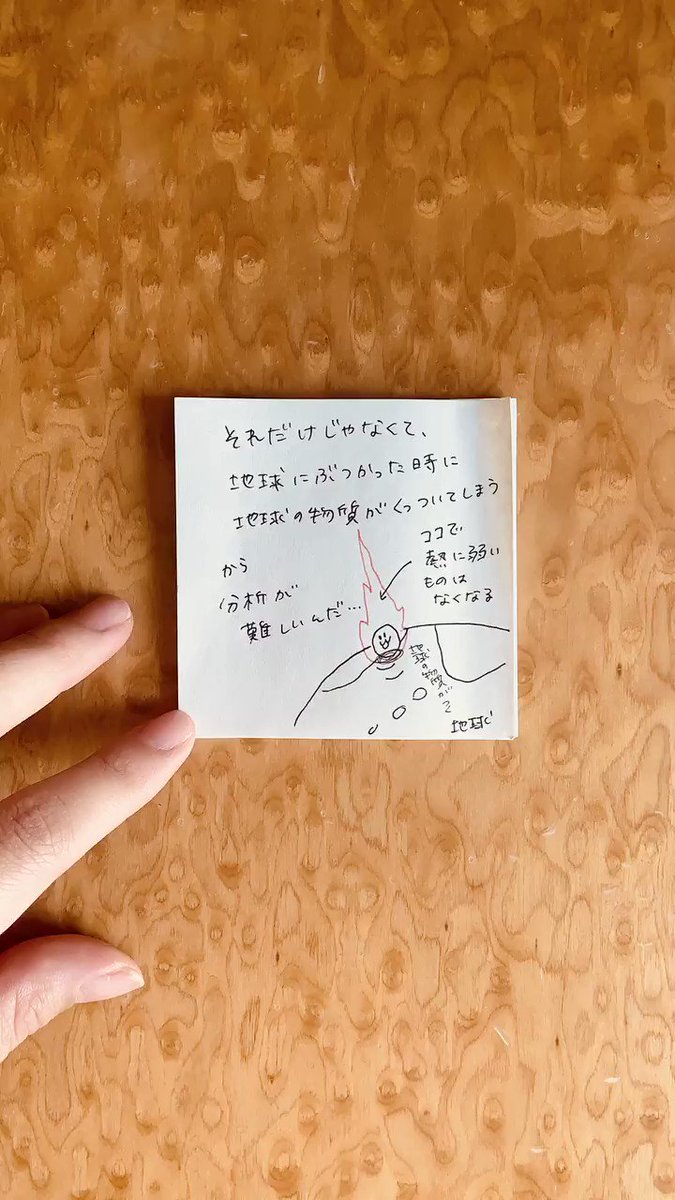 それだけじゃなくて、
地球にぶつかった時に
地球の物質がくっついてしまう
から
分析が
難しいんだ…
ココで
熱に弱い
ものは
なくなる
地球の物質が
地球